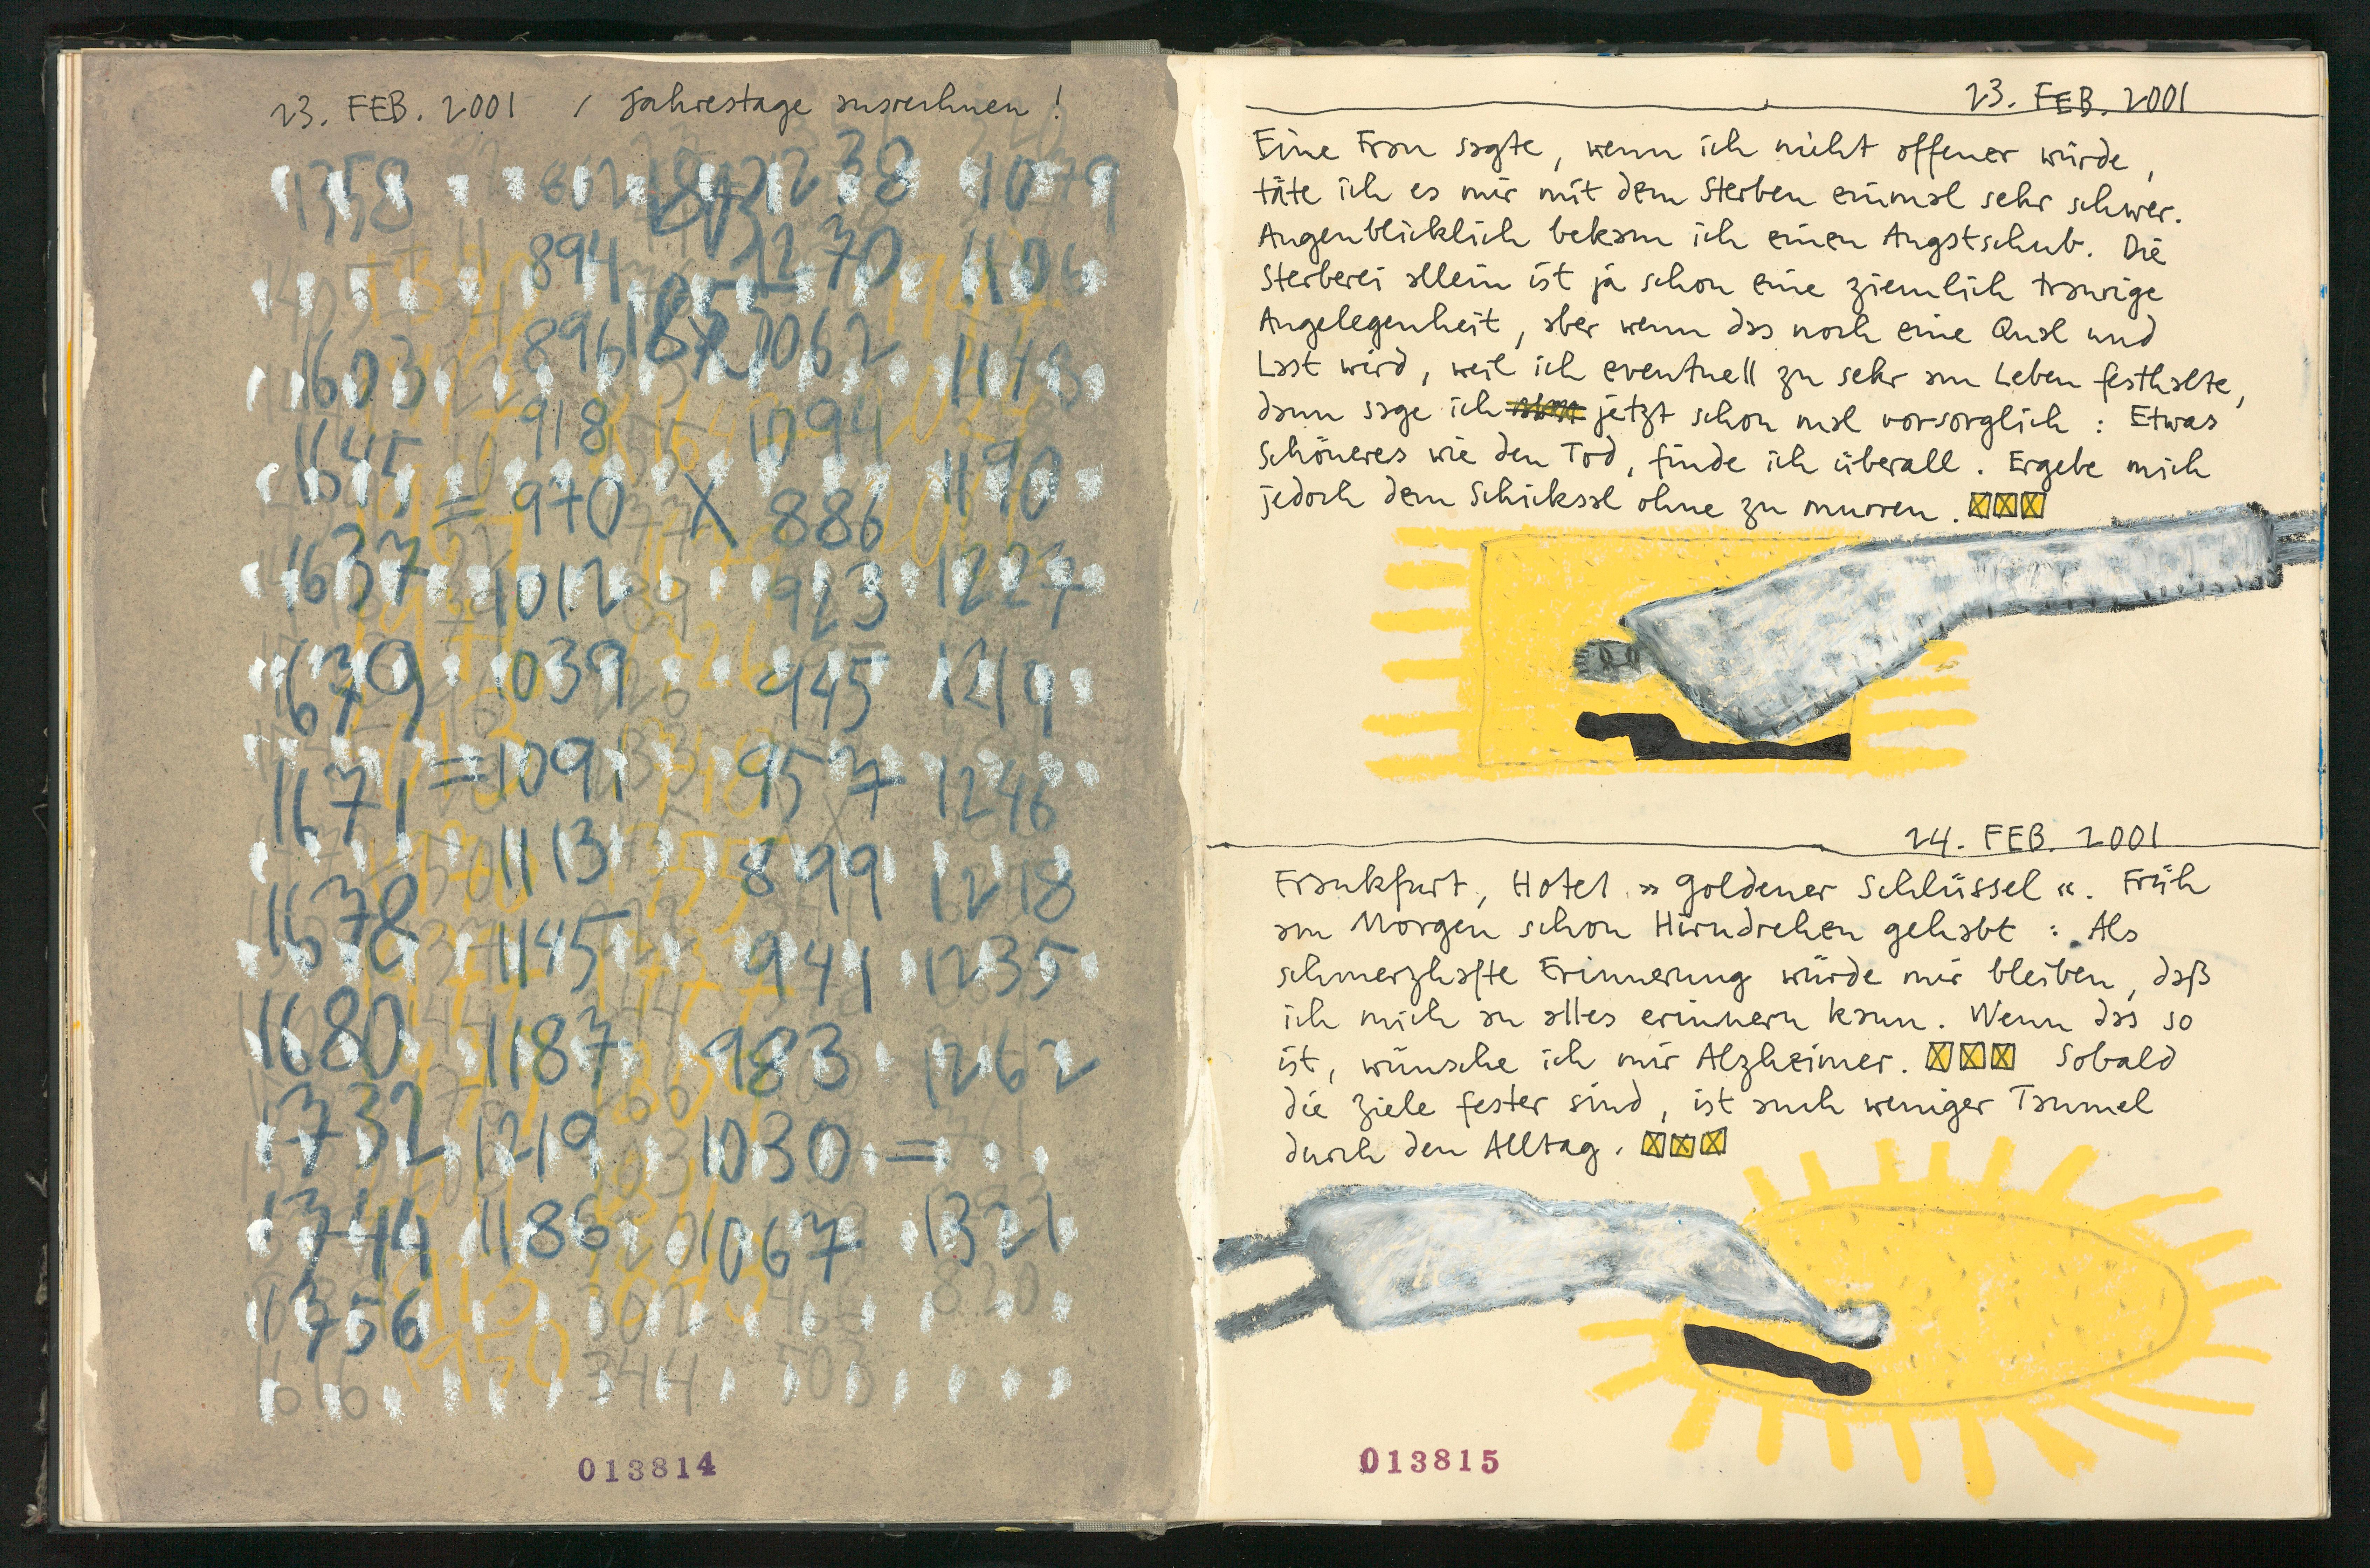 23. FEB. 2001 / Jahrestage ausrechnen!
1358 802 1238 1079
894 1270 1106
1603 896 1062 1143
1645 918 1094 1190
= 970 X 886
1637 1012 923 1227
1679 1039 945 1219
1671 = 1091 957 1246
1113 899 1218
1678 1145 941 1235
1680 1187 983 1262
1732 1219 1030 =
1744 1186 1067 1321
1756 302 820
1616 1950 344 503
013814
23. FEB. 2001
Eine Frau sagte, wenn ich nicht offener würde,
täte ich es mir mit dem Sterben einmal sehr schwer.
Augenblicklich bekam ich einen Angstschub. Die
Sterberei allein ist ja schon eine ziemlich traurige
Angelegenheit, aber wenn das noch eine Qual und
Last wird, weil ich eventuell zu sehr am Leben festhalte,
dann sage ich jetzt schon mal vorsorglich: Etwas
Schöneres wie den Tod, finde ich überall. Ergebe mich
jedoch dem Schicksal ohne zu murren.
24. FEB. 2001
Frankfurt, Hotel »Goldener Schlüssel«. Früh
am Morgen schon Hirndrehen gehabt: Als
schmerzhafte Erinnerung würde mir bleiben, daß
ich mich an alles erinnern kann. Wenn das so
ist, wünsche ich mir Alzheimer. Sobald
die Ziele fester sind, ist auch weniger Taumel
durch den Alltag.
013815